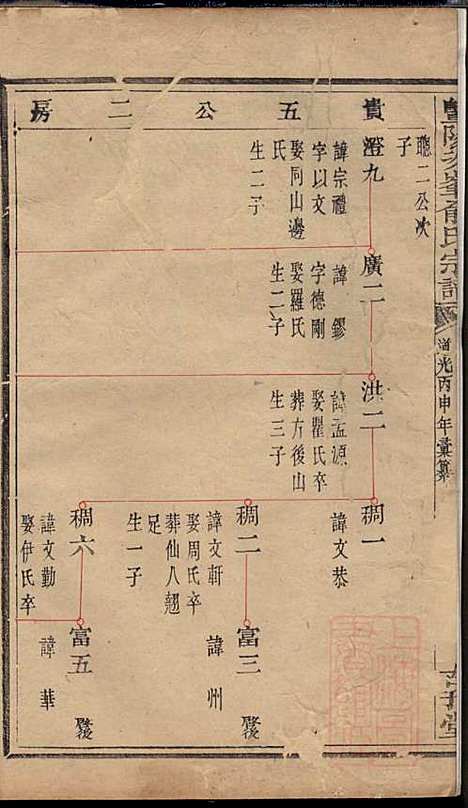 貴五公二房
聰二公次
子
澄九
諱宗禮
字以文
娶同山邊
氏
生二子
廣二
諱鏐
字德剛
娶羅氏
生二子
洪二
諱孟源
娶瞿氏卒
葬方後山
生三子
稠一
諱文恭
稠二
諱文軒
娶周氏卒
葬仙人翹
足
生一子
富三
諱州
稠六
諱文勤
娶伊氏卒
富五
諱華
俞氏宗譜
道光丙申年彙纂